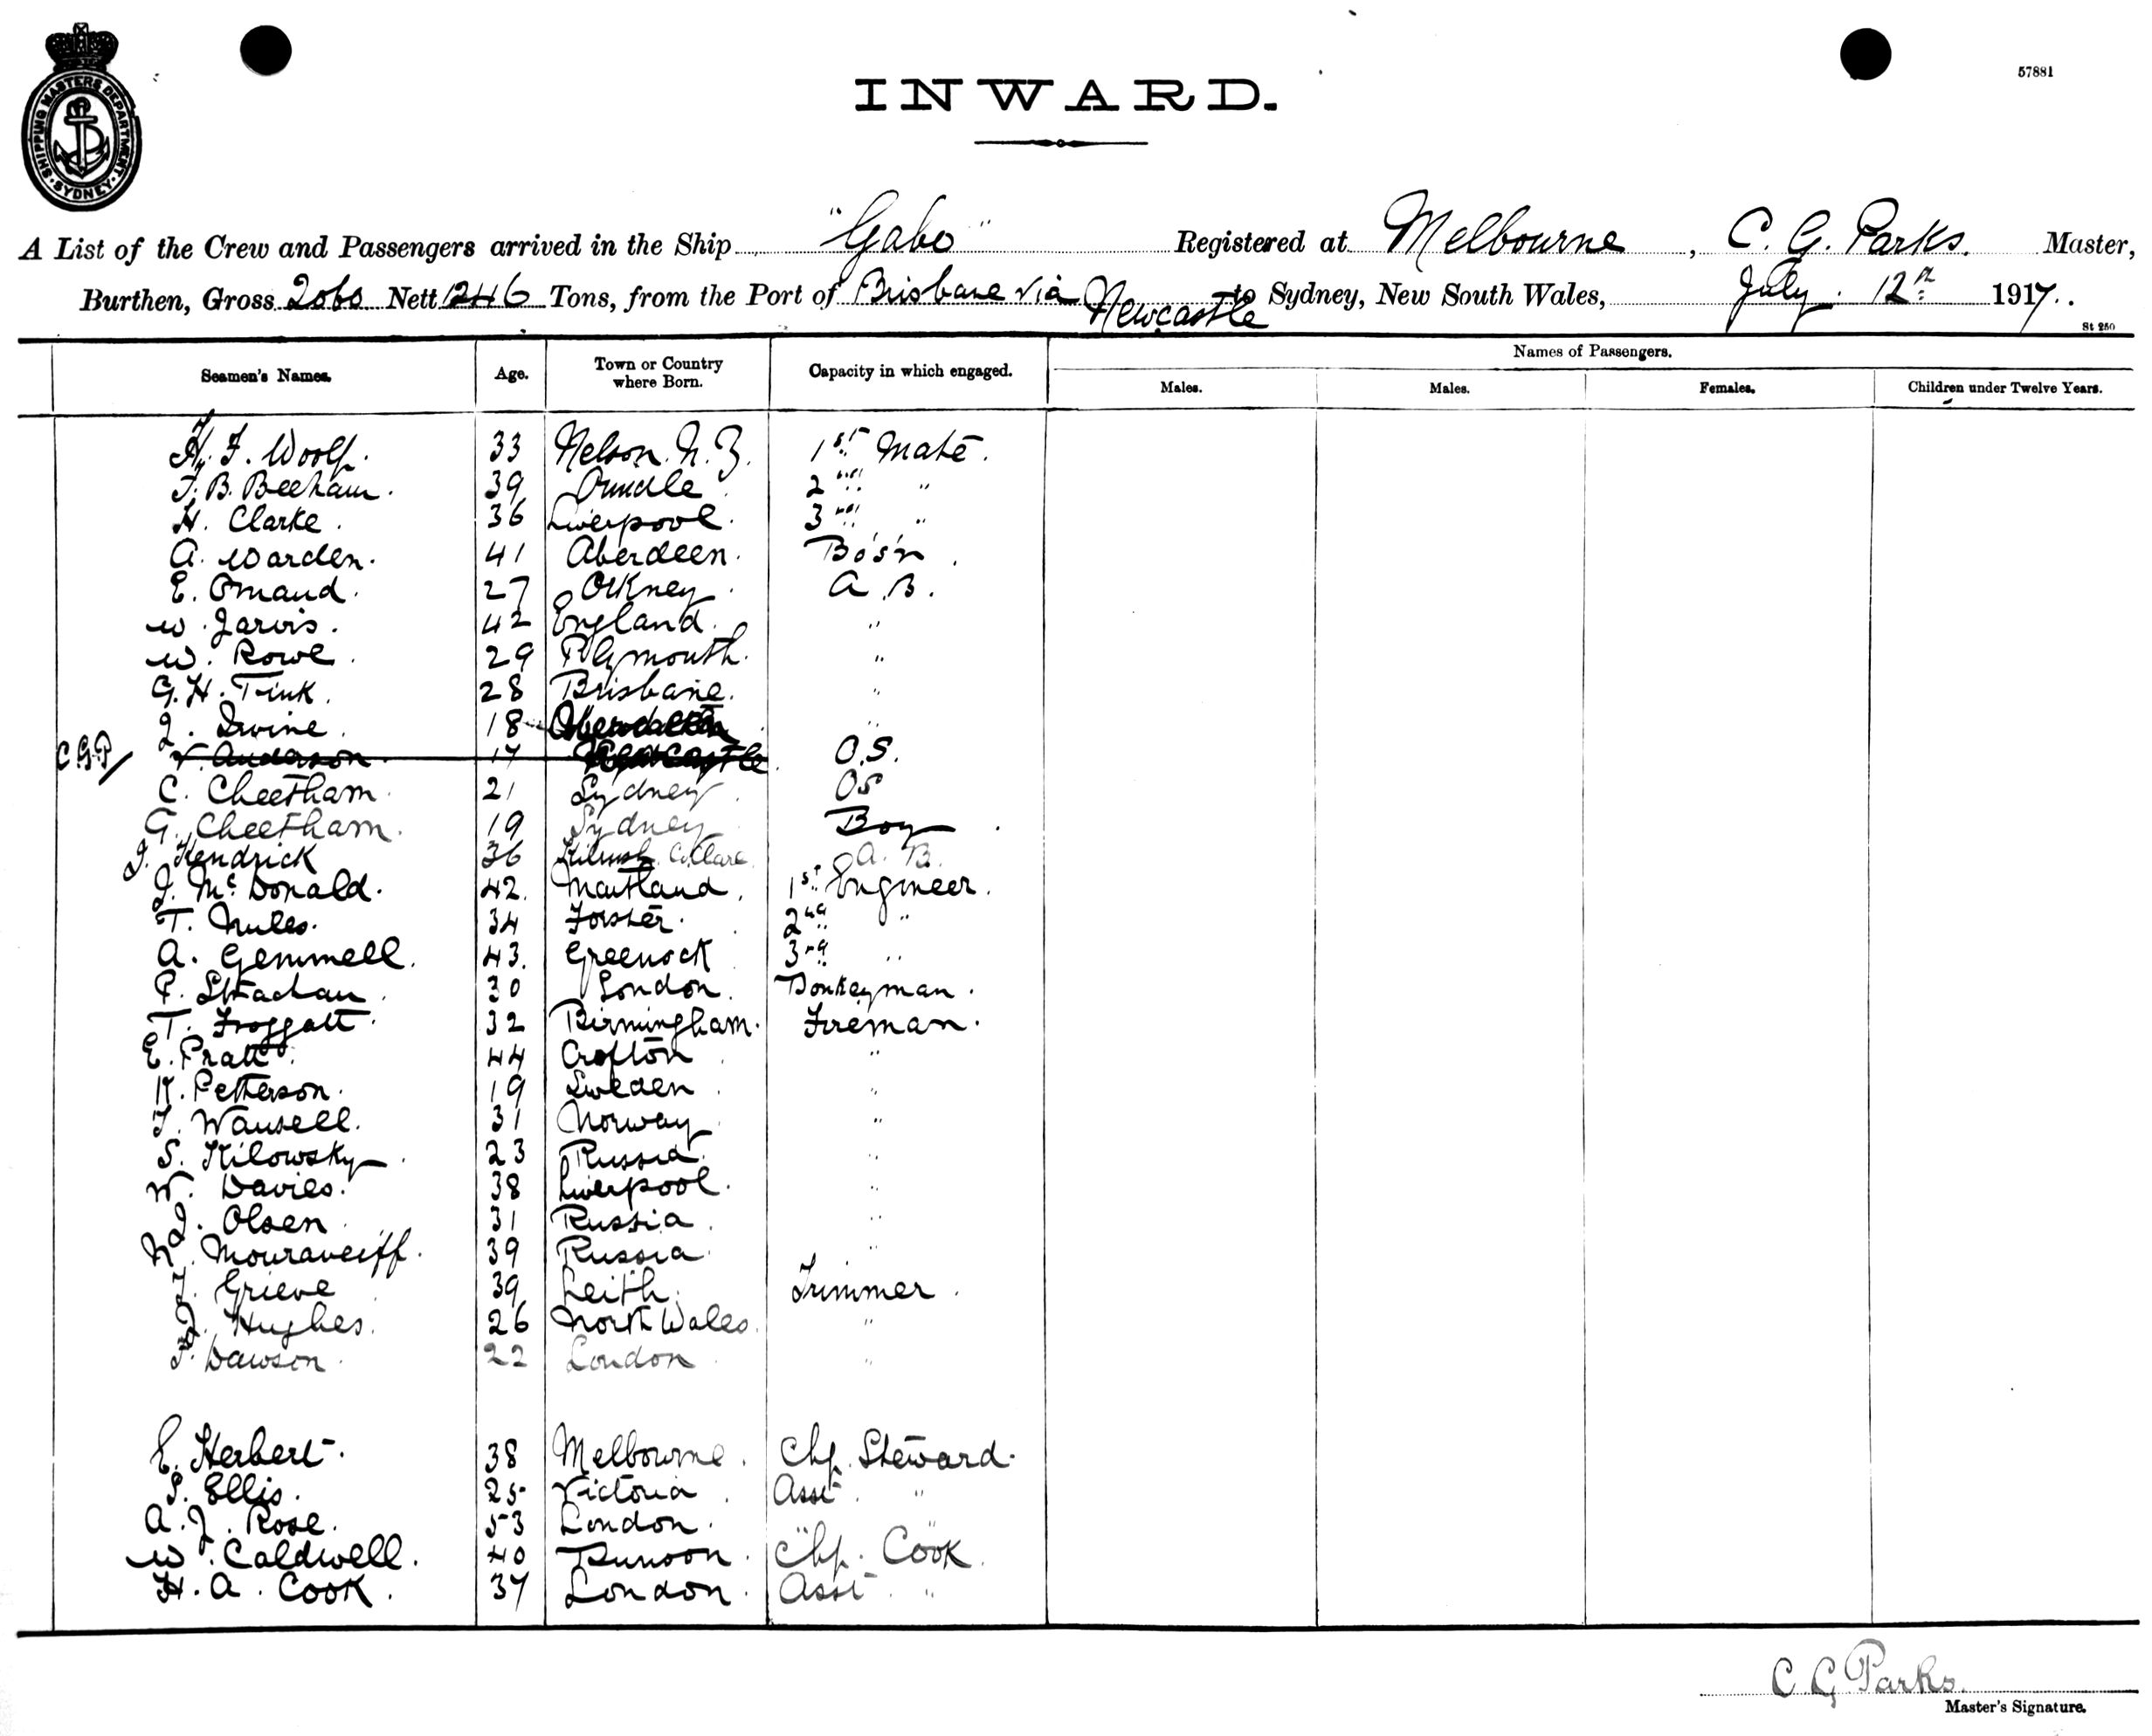 SHIPPING MASTERS DEPARTMENT · SYDNEY ·
57881
INWARD.
A List of the Crew and Passengers arrived in the Ship "Gabo" Registered at Melbourne, C. G. Parks. Master,
Burthen, Gross 2060 Nett 1246 Tons, from the Port of Brisbane via Newcastle to Sydney, New South Wales, July 12th 1917.
St 250
Seamen's Names. Age. Town or Country where Born. Capacity in which engaged. Names of Passengers.
Males. Males. Females. Children under Twelve Years.
H. F. Woolf. 33 Nelson. N. Z. 1st Mate.
F. B. Beeham. 39 2nd "
H. Clarke. 36 Liverpool. 3rd "
A. Warden. 41 Aberdeen. Bo's'n.
E. Omand. 27 Orkney. A. B.
W. Jarvis. 42 England. "
W. Rowe. 29 Plymouth. "
G. H. Tink. 28 Brisbane. "
J. Irvine. 18 Aberdeen "
CGP Anderson 17 Newcastle O.S.
C. Cheetham. 21 Sydney. OS
G. Cheetham. 19 Sydney Boy.
J. Kendrick 36 Kilrush Co. Clare A. B.
J. McDonald. 42. Maitland. 1st Engineer.
T. Miles. 34 Forster. 2nd "
A. Gemmell. 43. Greenock 3rd "
P. Strachan. 30 London. Donkeyman.
T. Froggatt. 32 Birmingham. Fireman.
E. Pratt. 44 Crofton "
K. Petterson. 19 Sweden "
T. Wansell. 31 Norway "
S. Kilowsky. 23 Russia. "
W. Davies. 38 Liverpool. "
J. Olsen 31 Russia. "
N. Mouraveiff. 39 Russia. "
J. Grieve 39 Leith. Trimmer.
J. Hughes. 26 North Wales. "
F. Dawson. 22 London "
E. Herbert. 38 Melbourne. Chf. Steward.
S. Ellis. 25 Victoria. Asst. "
A. J. Rose. 53 London. " "
W. Caldwell. 40 Dunoon. Chf. Cook.
H. A. Cook. 37 London. Asst. "
C G Parks.
Master's Signature.